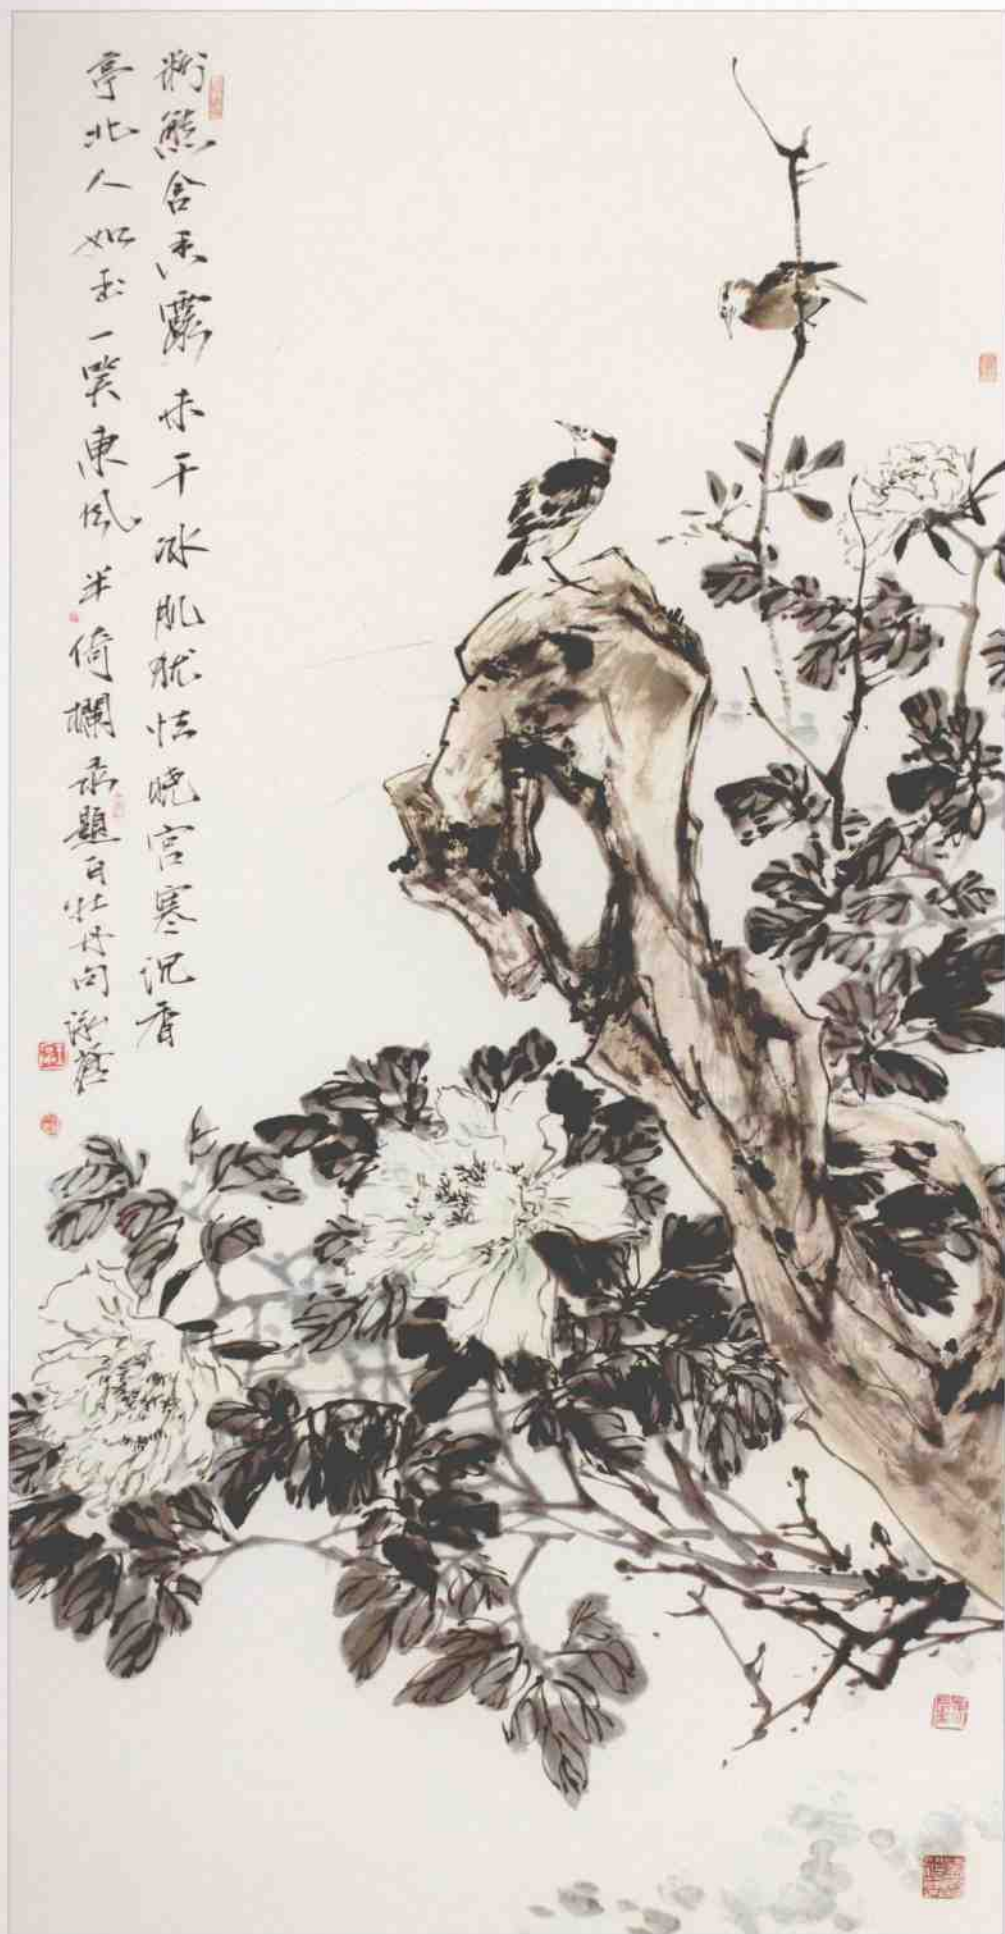 殢态含香露未干冰肌犹怯晓宫寒沉香
亭北人如玉一笑東風半倚欄录題白牡丹句